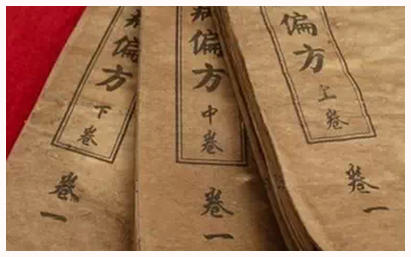 偏方上卷
卷一
偏方中卷
卷一
偏方下卷
卷一